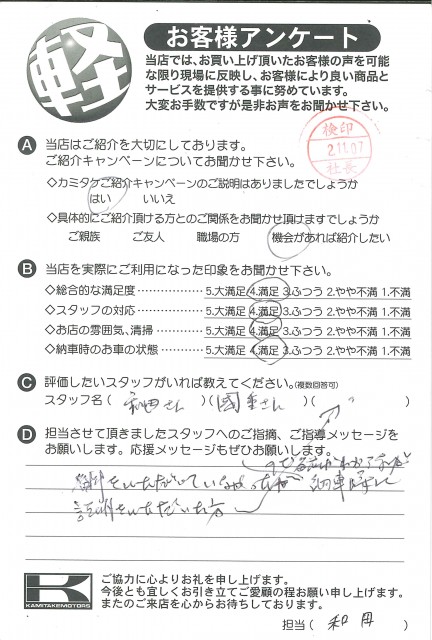 軽
お客様アンケート
当店では、お買い上げ頂いたお客様の声を可能
な限り現場に反映し、お客様により良い商品と
サービスを提供する事に努めています。
大変お手数ですが是非お声をお聞かせ下さい。
検印
2.11.07
社長
A 当店はご紹介を大切にしております。
ご紹介キャンペーンについてお聞かせ下さい。
◇カミタケご紹介キャンペーンのご説明はありましたでしょうか
はい いいえ
◇具体的にご紹介頂ける方とのご関係をお聞かせ頂けますでしょうか
ご親族 ご友人 職場の方 機会があれば紹介したい
B 当店を実際にご利用になった印象をお聞かせ下さい。
◇総合的な満足度 5.大満足 4.満足 3.ふつう 2.やや不満 1.不満
◇スタッフの対応 5.大満足 4.満足 3.ふつう 2.やや不満 1.不満
◇お店の雰囲気、清掃 5.大満足 4.満足 3.ふつう 2.やや不満 1.不満
◇納車時のお車の状態 5.大満足 4.満足 3.ふつう 2.やや不満 1.不満
C 評価したいスタッフがいれば教えてください。(複数回答可)
スタッフ名 ( 和田さん )( 國重さん )( )
D 担当させて頂きましたスタッフへのご指摘、ご指導メッセージを
お願いします。応援メッセージもぜひお願いします。
納車時に
いただいた方
K
KAMITAKE MOTORS
ご協力に心よりお礼を申し上げます。
今後とも宜しくお引き立てご愛顧の程お願い申し上げます。
またのご来店を心からお待ちしております。
担当 ( 和田 )